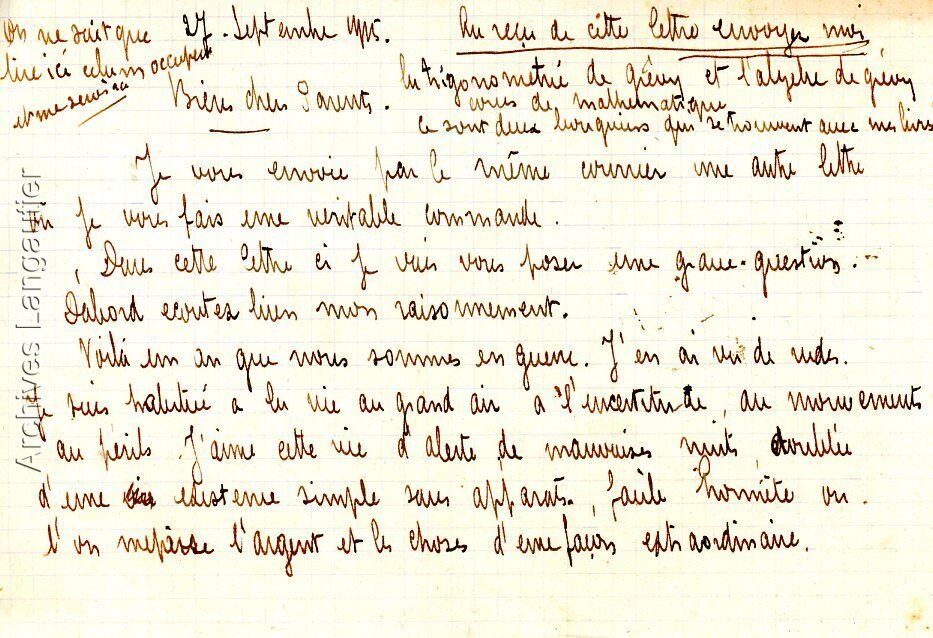 On ne sait que
lire ici cela m'occupent
et me servira
27 Septembre 1915.
Au reçu de cette lettre envoyer moi
la trigonometrie de Grévy et l'algebre de Grévy
cours de mathematique
ce sont deux bouquins qui se trouvent avec mes livres
Bien chers Parents.
Je vous envoie par le même courrier une autre lettre
ou je vous fais une veritable commande.
Dans cette lettre ci je vais vous poser une grave question.
Dabord ecoutez bien mon raisonnement.
Voilà un an que nous sommes en guerre. J'en ai vu de rudes.
je suis habitué a la vie au grand air a l'incertitude, au mouvements
au périls. J'aime cette vie d'alerte de mauvaises nuits doublée
d'une existence simple sans apparats, facile honnête ou
l'on meprise l'argent et les choses d'une façon extraordinaire.
Archives Langautier